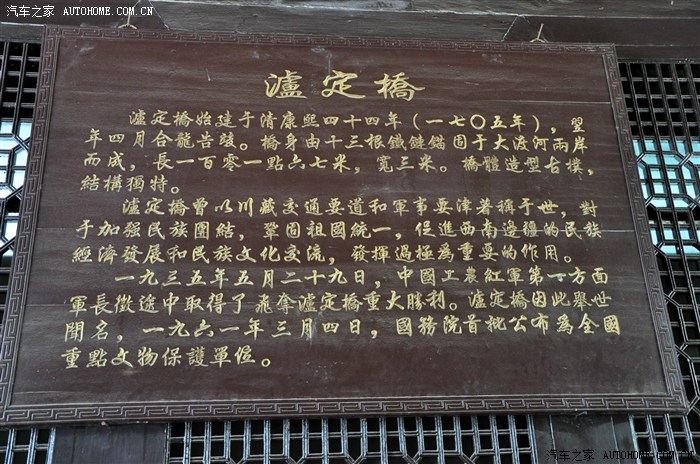 汽车之家 AUTOHOME.COM.CN
瀘定橋
瀘定橋始建于清康熙四十四年（一七〇五年），翌
年四月合龍告竣。橋身由十三根鐵鏈錨固于大渡河兩岸
而成，長一百零一點六七米，寬三米。橋體造型古樸，
結構獨特。
瀘定橋曾以川藏交通要道和軍事要津著稱于世，對
于加强民族團結，鞏固祖國統一，促進西南邊疆的民族
經濟發展和民族文化交流，發揮過極為重要的作用。
一九三五年五月二十九日，中國工農紅軍第一方面
軍長徵途中取得了飛奪瀘定橋重大勝利。瀘定橋因此舉世
聞名，一九六一年三月四日，國務院首批公布為全國
重點文物保護單位。
汽车之家 AUTOHOME.COM.CN